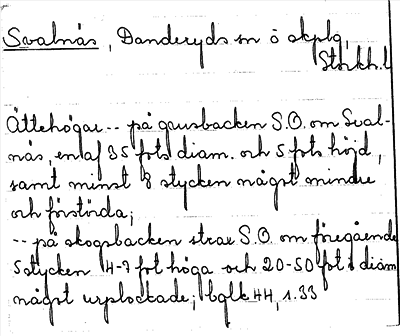 Svalnäs, Danderyds sn ö skplg,
Stockh.l
Ättehögar -- på grusbacken S.O. om Sval-
näs, en af 35 fots diam. och 5 fots höjd,
samt minst 8 stycken något mindre
och förstörda;
-- på skogsbacken strax S.O. om föregående
5 stycken 4-7 fot höga och 20-50 fot i diam
något urplockade; bglk 44, 1.33